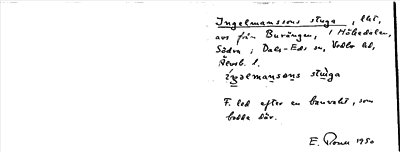 Ingelmanssons stuga, lht,
avs från Burängen, i Håbedalen,
Södra; Dals-Eds sn, Vedbo hd,
Älvsb. l.
ingəlmansons stuga
F. lod efter en banvakt, som
bodde där.
E. 1950